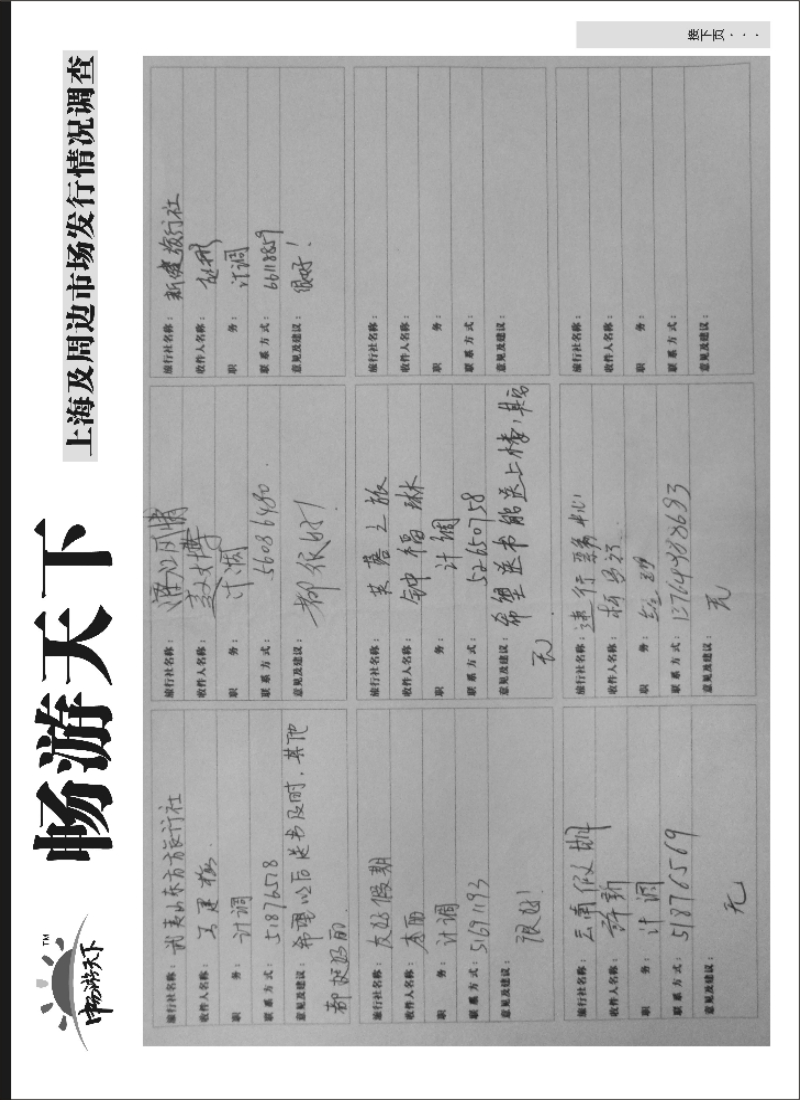 畅游天下
TM
畅游天下
上海及周边市场发行情况调查
旅行社名称：武夷山东方旅行社
收件人名称：
职　务：计调
联系方式：51876578
意见及建议：希望以后送书及时，其他
都挺好的
旅行社名称：
收件人名称：
职　务：计调
联系方式：56086480
意见及建议：都很好！
旅行社名称：新健旅行社
收件人名称：赵彬
职　务：计调
联系方式：66118859
意见及建议：很好！
旅行社名称：友好假期
收件人名称：
职　务：计调
联系方式：51691193
意见及建议：
很好！
旅行社名称：芙蓉之旅
收件人名称：钟福琳
职　务：计调
联系方式：52650758
意见及建议：希望送书能送上楼，其它
无
旅行社名称：
收件人名称：
职　务：
联系方式：
意见及建议：
旅行社名称：云南假期
收件人名称：许新
职　务：计调
联系方式：51876569
意见及建议：
无
旅行社名称：速行票务中心
收件人名称：
职　务：经理
联系方式：13764938693
意见及建议：
无
旅行社名称：
收件人名称：
职　务：
联系方式：
意见及建议：
接下页···